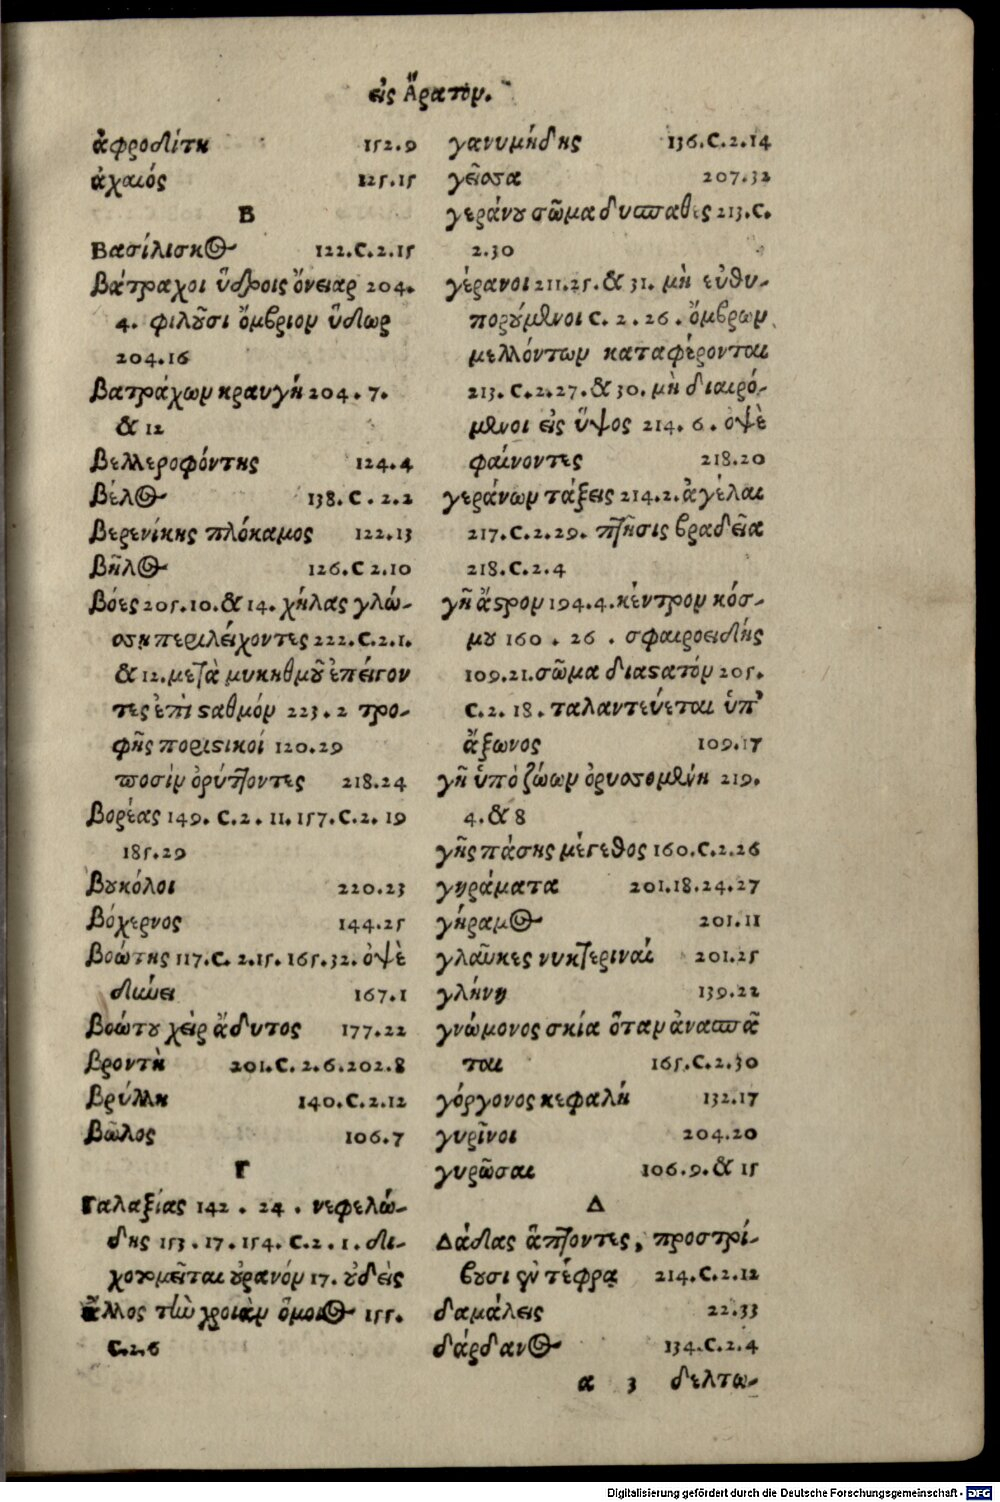 εἰς Ἄρατον.
ἀφροδίτη 152.9
ἀχαιός 125.15
Β
Βασίλισκος 122.C.2.15
Βάτραχοι ὕδροις ὄνειαρ 204.
4. φιλοῦσι ὄμβριον ὕδωρ
204.16
Βατράχων κραυγὴ 204.7.
& 12
Βελλεροφόντης 124.4
Βέλος 138.C.2.2
Βερενίκης πλόκαμος 122.13
Βῆλος 126.C 2.10
Βόες 205.10.& 14. χήλας γλώ-
σσῃ περιλείχοντες 222.C.2.1.
& 12. μετὰ μυκηθμοῦ ἐπείγον
τες ἐπὶ σταθμόν 223.2 τρο-
φῆς ποριστικοί 120.29
ποσὶν ὀρύττοντες 218.24
Βορέας 149. C.2.11.157.C.2.19
185.29
Βουκόλοι 220.23
Βόχερνος 144.25
Βοώτης 117.C.2.15.165.32. ὀψὲ
δύνει 167.1
Βοώτου χεὶρ ἄδυτος 177.22
Βροντὴ 201.C.2.6.202.8
Βρύλλη 140.C.2.12
Βῶλος 106.7
Γ
Γαλαξίας 142.24. νεφελώ-
δης 153.17.154.C.2.1. δι-
χοτομεῖται οὐρανόν 17. οὐδεὶς
ἄλλος τὴν χροιὰν ὅμοιος 155.
C.2.6
γανυμήδης 136.C.2.14
γεῖσσα 207.32
γεράνου σῶμα δυσπαθες 213.C.
2.30
γέρανοι 211.25.& 31. μὴ εὐθυ-
πορούμενοι C.2.26. ὄμβρων
μελλόντων καταφέρονται
213.C.2.27.& 30. μὴ διαιρό-
μενοι εἰς ὕψος 214.6. ὀψὲ
φαίνοντες 218.20
γεράνων τάξεις 214.2. ἀγέλαι
217.C.2.29. πτῆσις βραδεῖα
218.C.2.4
γῆ ἄστρον 194.4. κέντρον κόσ-
μου 160.26. σφαιροειδὴς
109.21. σῶμα διαστατόν 205.
C.2.18. ταλαντεύεται ὑπ'
ἄξωνος 109.17
γῆ ὑπὸ ζώων ὀρυσσομένη 219.
4.& 8
γῆς πάσης μέγεθος 160.C.2.26
γηράματα 201.18.24.27
γήραμος 201.11
γλαῦκες νυκτεριναί 201.25
γλήνη 139.22
γνώμονος σκία ὅταν ἀνασπᾶ
ται 165.C.2.30
γόργονος κεφαλή 132.17
γυρῖνοι 204.20
γυρῶσαι 106.9.& 15
Δ
Δάδας ἅπτοντες, προστρί-
βουσι ἐν τέφρᾳ 214.C.2.12
δαμάλεις 22.33
δάρδανος 134.C.2.4
α 3 δελτω-
Digitalisierung gefördert durch die Deutsche Forschungsgemeinschaft - DFG